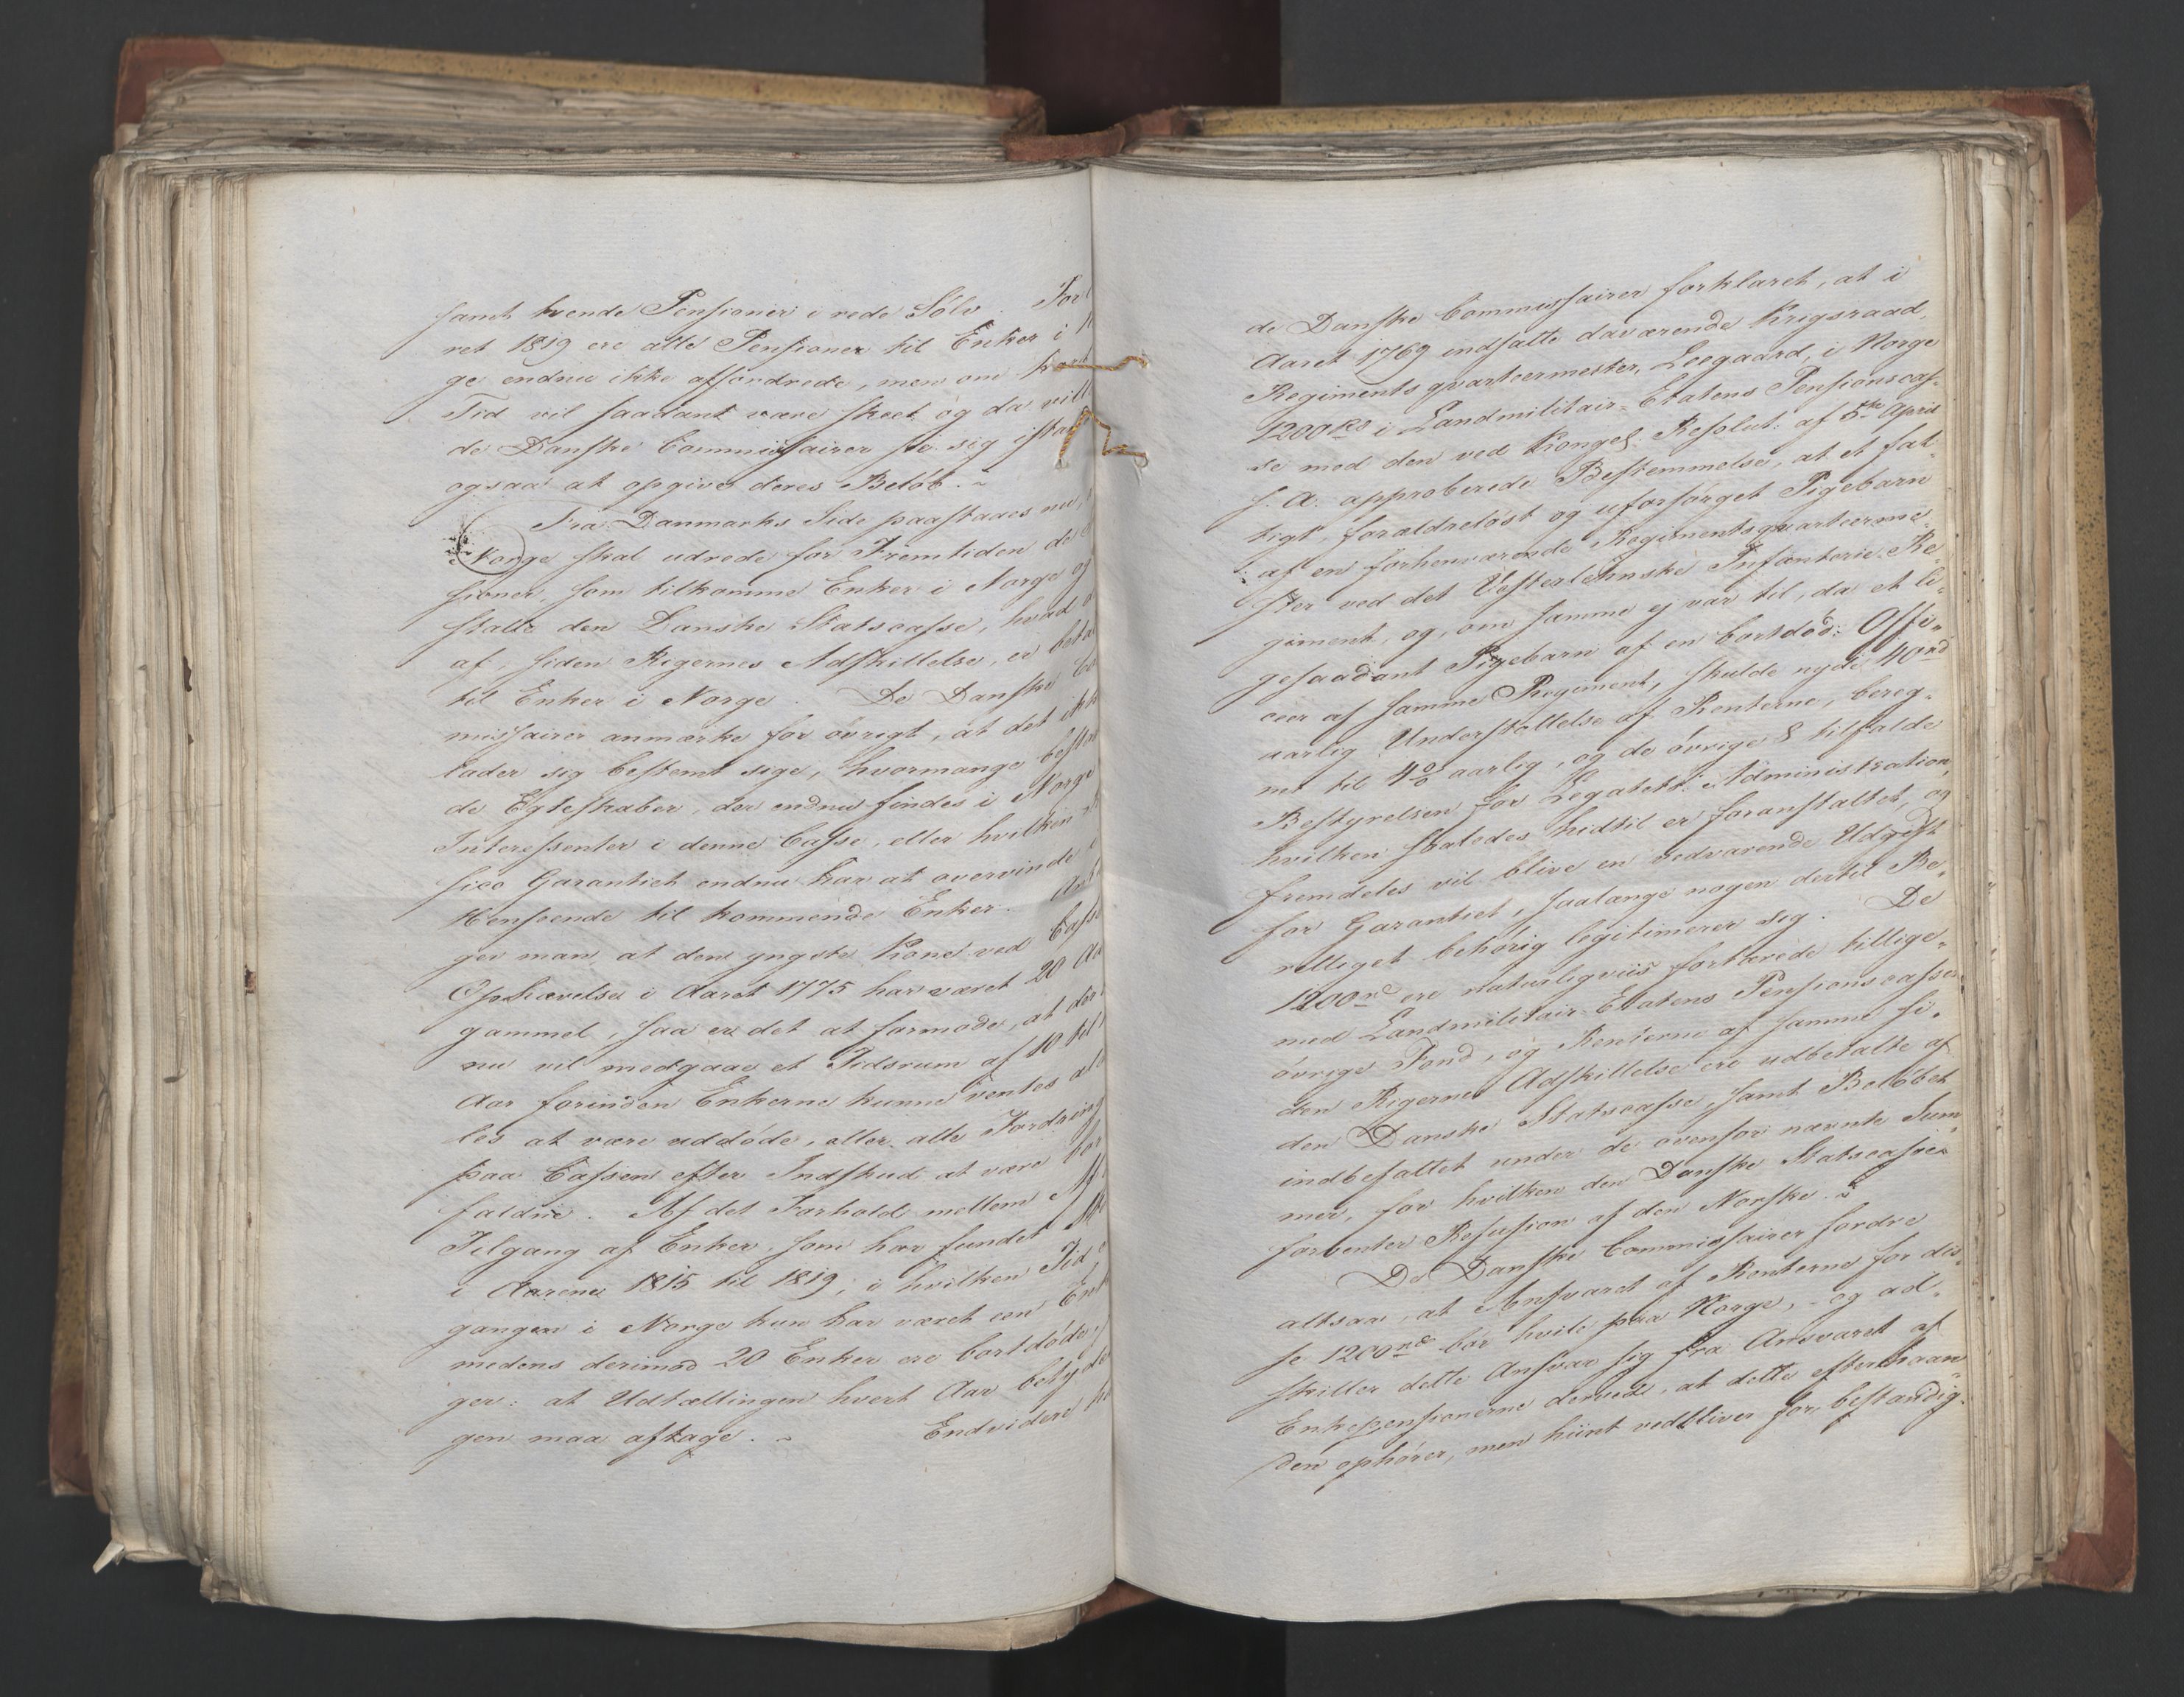 samt hvende Pensioner i rede Sölv. For
ret 1819 ere alle Pensioner til Enker i N
ge endnu ikke affordrede, men om kort
Tid vil saadant være skeet og da vill
de Danske Commissairer see sig istan
ogsaa at opgive deres Belöb. ~
Fra Danmarks Side paastaaes nu,
Norge skal udrede for Fremtiden de
sioner, som tilkomme Enker i Norge og
statte den Danske Statscasse, hvad
af, siden Rigernes Adskillelse, er beta
til Enker i Norge. De Danske Co
missairer anmærke for övrigt, at det ikk
lader sig bestemt sige, hvormange besta
de Egteskaber, der endnu findes i Norge
Interessenter i denne Casse, eller hvilken
sico Garantiet endnu har at overvinde
Henseende til kommende Enker. An
ger man, at den yngste Kone ved Casse
Ophævelse i Aaret 1775 har været 20 Aa
gammel, saa er det at formode, at der
nu vil medgaae et Tidsrum af 10 til
Aar forinden Enkerne kunne ventes al
les at være uddöde, eller alle Fordring
paa Cassen efter Indskud at være bor
faldne. Af det Forhold mellem Af
Tilgang af Enker, som har fundet St
i Aarene 1815 til 1819, i hvilken Tid
gangen i Norge kun har været een Enk
medens derimod 20 Enker ere bortdöde,
ger: at Udtællingen hvert Aar betyde
gen maa aftage. ~ Endvidere h
de Danske Commissairer forklaret, at i
Aaret 1769 indsatte daværende Krigsraad,
Regimentsqvarteermester, Leegaard, i Norge
1200 rd i Landmilitair-Etatens Pensionscas-
se mod den ved Kongel. Resolut: af 5te April
s. A. approberede Bestemmelse, at et fat-
tigt, forældrelöst og uforsörget Pigebarn
af en forhenværende Regimentsqvarteerme-
ster ved det Vesterlehnske Infanterie-Re-
giment, og, om samme ej var til, da et li-
gesaadant Pigebarn af en bortdöd: Offi-
ceer af samme Regiment, skulde nyde 40 rd
aarlig Understöttelse af Renterne, bereg-
net til 4 % aarlig, og de övrige 8 tilfalde
Bestyrelsen for Legatets Administration,
hvilken saaledes hidtil er foranstaltet, og
fremdeles vil blive en vedvarende Udgift
for Garantiet, saalænge nogen dertil Be-
rettiget behörig legitimerer sig. De
1200 rd ere naturligviis fortærede tillige-
med Landmilitair-Etatens Pensionscasses
övrige Fond, og Renterne af samme si-
den Rigernes Adskillelse ere udbetalte af
den Danske Statscasse, samt Belöbet
indbefattet under de ovenfor nævnte Sum-
mer, for hvilken den Danske Statscasse
forventer Refusion af den Norske. ~
De Danske Commissairer fordre
altsaa, at Ansvaret af Renterne for dis-
se 1200 rd bör hvile paa Norge, og ad-
skiller dette Ansvar sig fra Ansvaret af
Enkepensionerne derved, at dette efterhaan-
den ophörer, men hiint vedbliver for bestandig.